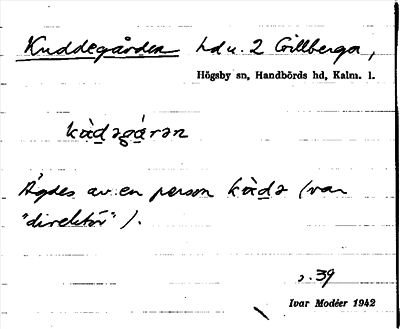 Kuddegården hdu. 2 Gillberga,
Högsby sn, Handbörds hd, Kalm. l.
kùd̲əgá̲rən
Ägdes av en person kùd̲ə (var
"direktör").
s. 39
Ivar Modéer 1942